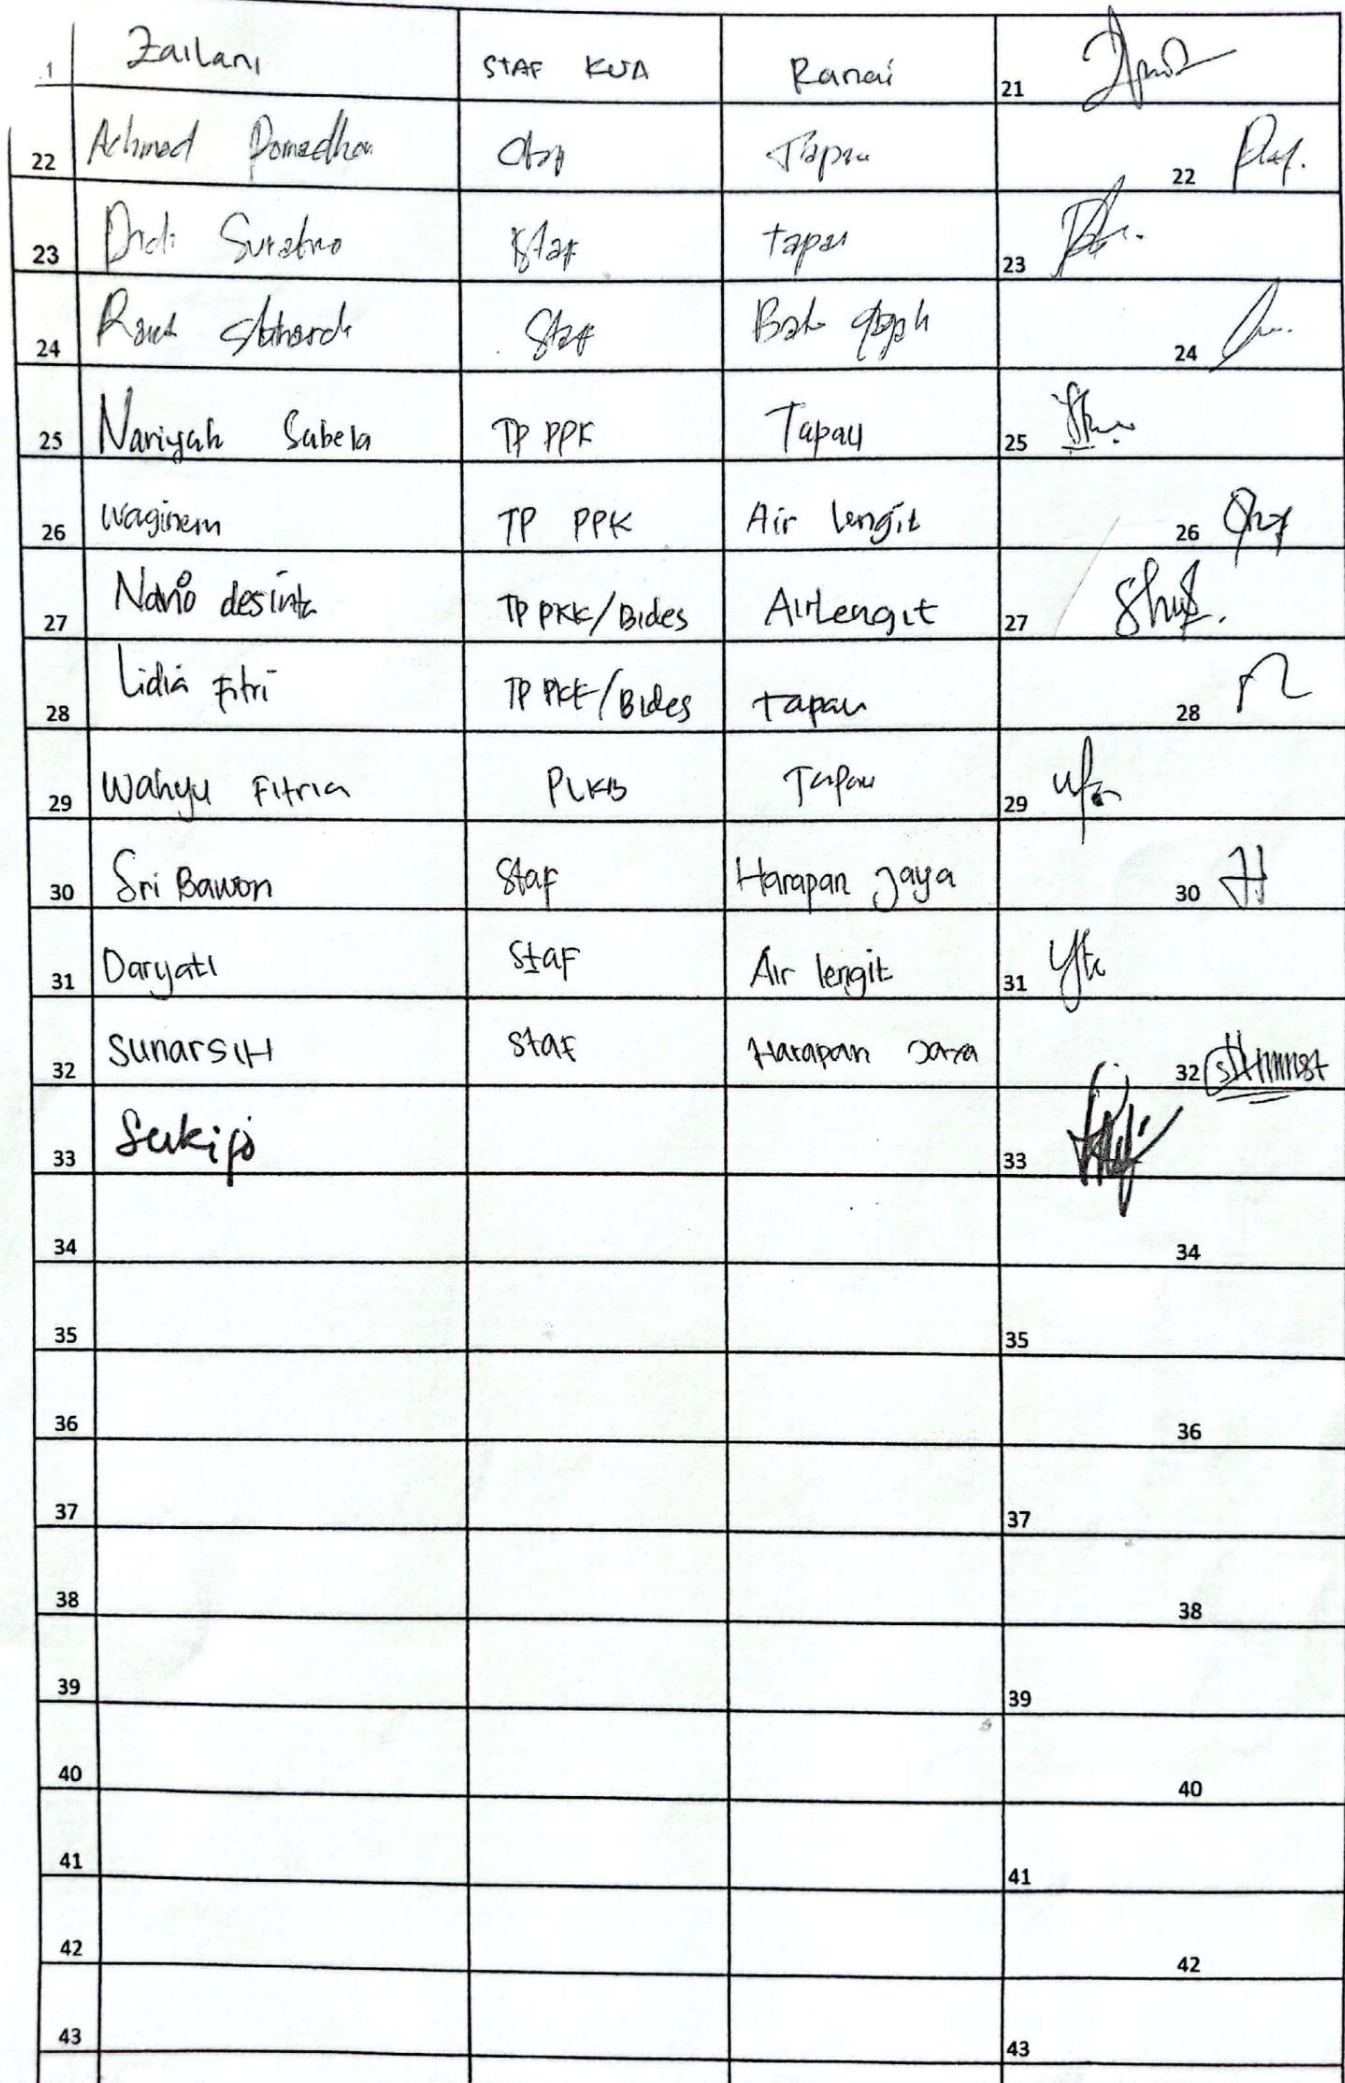 1 Zailani STAF KUA Ranai 21
22 Achmad Staf Tapau 22
23 Didi Suratno Staf tapau 23
24 Staf 24
25 Nariyah Sabela TP PPK Tapau 25
26 Waginem TP PPK Air lengit 26
27 desinta TP PKK/Bides AirLengit 27
28 Lidia Fitri TP PKK/Bides tapau 28
29 Wahyu Fitria PLKB Tapau 29
30 Sri Bawon Staf Harapan Jaya 30
31 Daryati Staf Air lengit 31
32 SunarsiH staf Harapan Jaya 32
33 33
34 34
35 35
36 36
37 37
38 38
39 39
40 40
41 41
42 42
43 43